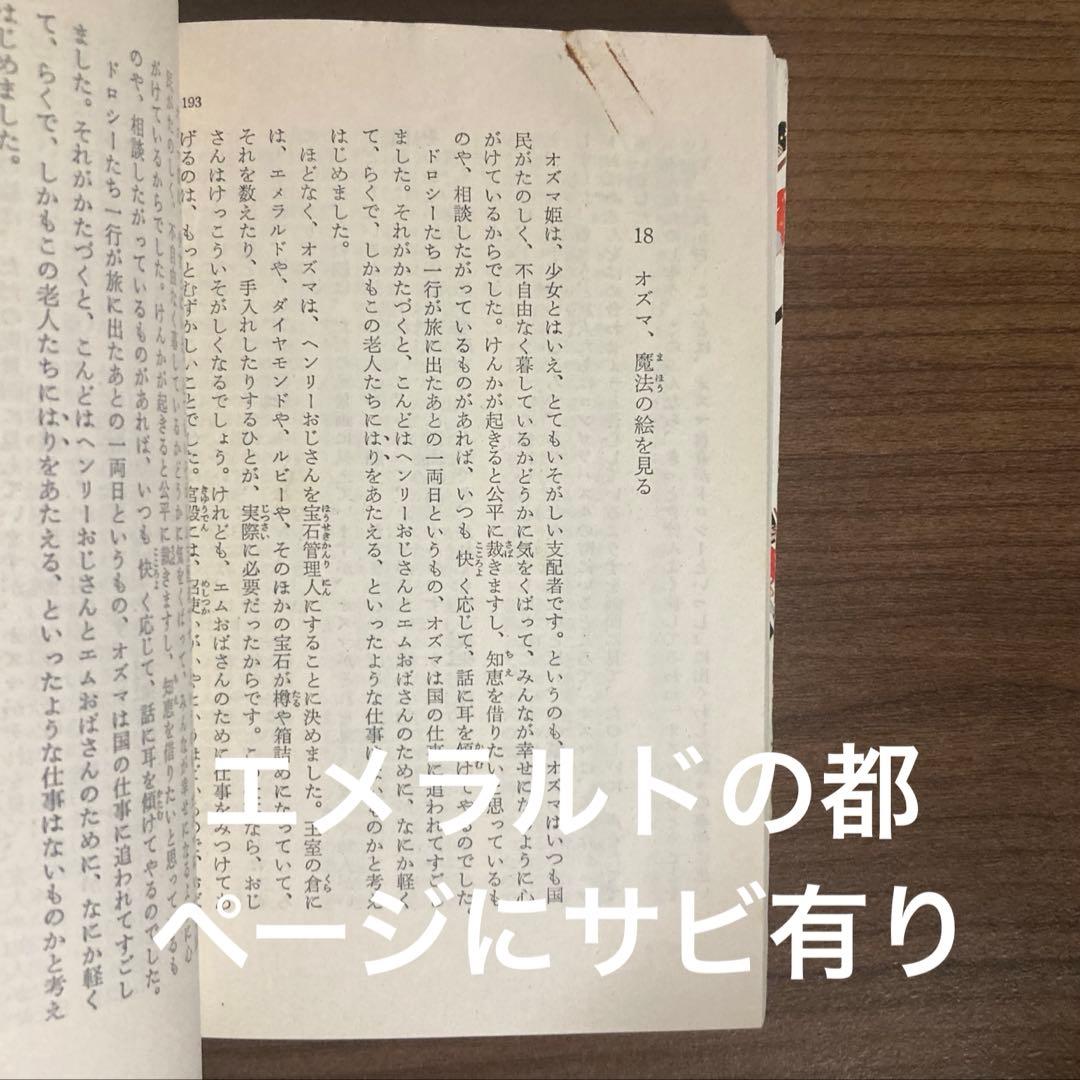 193
18 オズマ、魔法の絵を見る
オズマ姫は、少女とはいえ、とてもいそがしい支配者です。というのも、オズマはいつも国
民がたのしく、不自由なく暮しているかどうかに気をくばって、みんなが幸せになるように心
がけているからでした。けんかが起きると公平に裁きますし、知恵を借りたいと思っているも
のや、相談したがっているものがあれば、いつも快く応じて、話に耳を傾けてやるのでした。
ドロシーたち一行が旅に出たあとの一両日というもの、オズマは国の仕事に追われてすごし
ました。それがかたづくと、こんどはヘンリーおじさんとエムおばさんのために、なにか軽く
て、らくで、しかもこの老人たちにはりをあたえる、といったような仕事はないものかと考え
はじめました。
ほどなく、オズマは、ヘンリーおじさんを宝石管理人にすることに決めました。王室の倉に
は、エメラルドや、ダイヤモンドや、ルビーや、そのほかの宝石が樽や箱詰めになっていて、
それを数えたり、手入れしたりするひとが、実際に必要だったからです。なら、おじ
さんはけっこういそがしくなるでしょう。けれども、エムおばさんのために仕事をみつけてあ
げるのは、もっとむずかしいことでした。宮殿には、召使が
がけているからでした。けんかが起きると公平に裁きますし、知恵を借りたいと思って
のや、相談したがっているものがあれば、いつも快く応じて、話に耳を傾けてやるのでした。
ドロシーたち一行が旅に出たあとの一両日というもの、オズマは国の仕事に追われてすごし
ました。それがかたづくと、こんどはヘンリーおじさんとエムおばさんのために、なにか軽く
て、らくで、しかもこの老人たちにはりをあたえる、といったような仕事はないものかと考え
はじめました。
エメラルドの都
ページにサビ有り